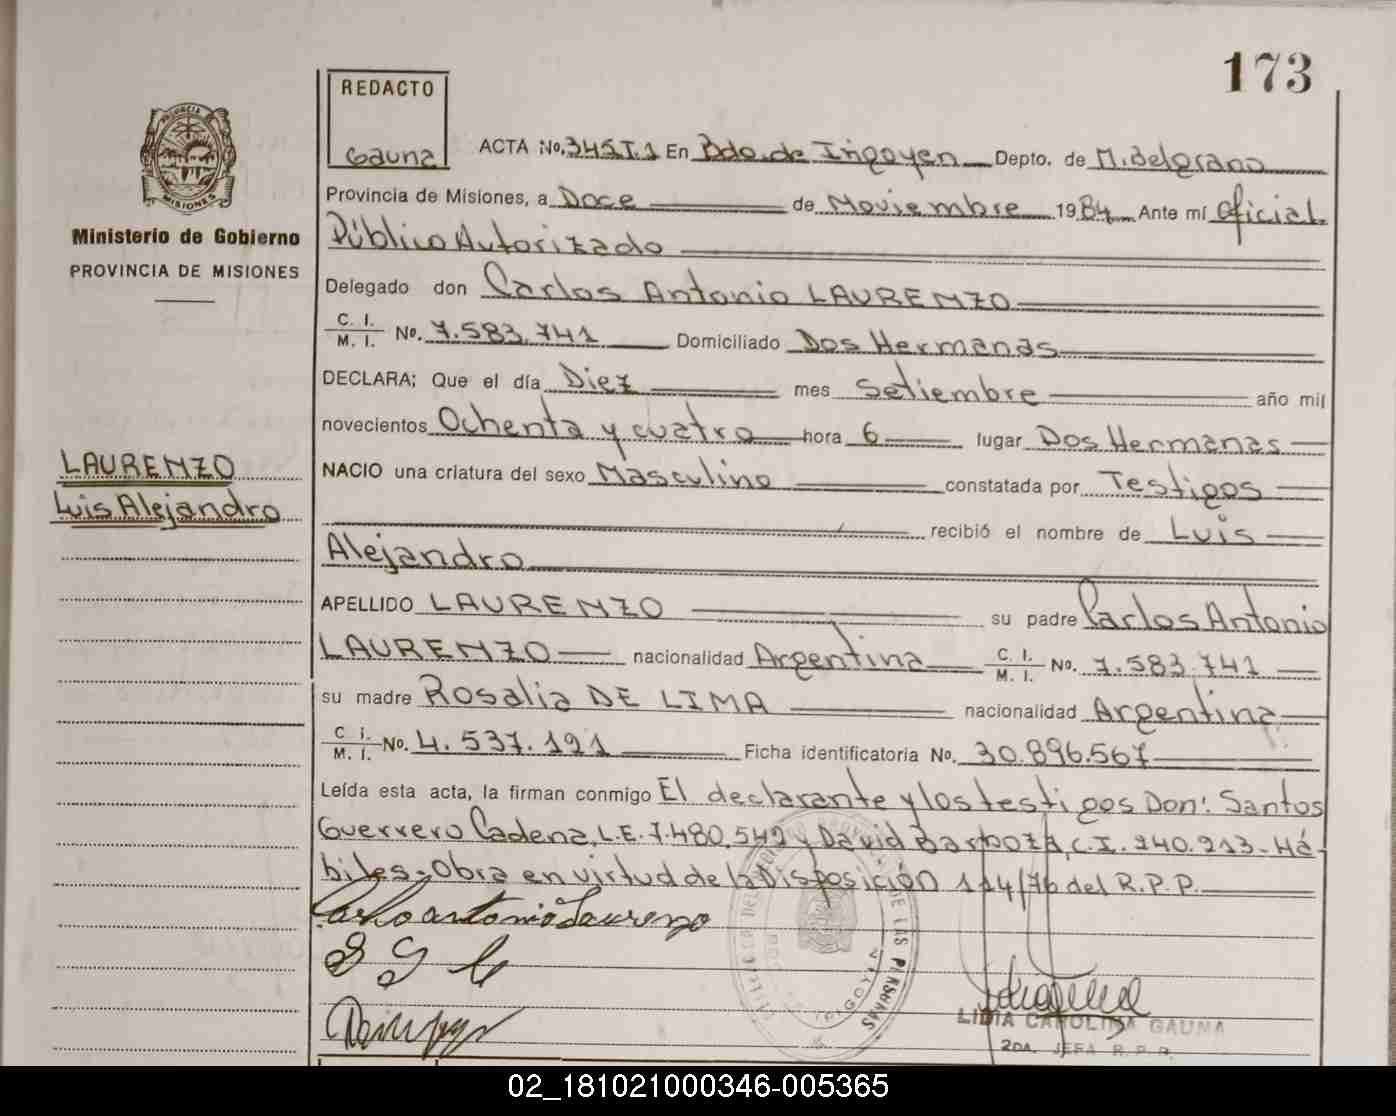 173
REDACTO
Gauna
PROVINCIA DE
MISIONES
Ministerio de Gobierno
PROVINCIA DE MISIONES
LAURENZO
Luis Alejandro
ACTA No. 345T.1 En Bdo. de Irigoyen Depto. de M. Belgrano
Provincia de Misiones, a Doce de Noviembre 1984 Ante mí Oficial
Público Autorizado
Delegado don Carlos Antonio LAURENZO
C. I. / M. I. No. 7.583.741 Domiciliado Dos Hermanas
DECLARA; Que el día Diez mes Setiembre año mil
novecientos Ochenta y cuatro hora 6 lugar Dos Hermanas
NACIO una criatura del sexo Masculino constatada por Testigos
recibió el nombre de Luis
Alejandro
APELLIDO LAURENZO su padre Carlos Antonio
LAURENZO nacionalidad Argentina C. I. / M. I. No. 7.583.741
su madre Rosalia DE LIMA nacionalidad Argentina
C. I. / M. I. No. 4.537.191 Ficha identificatoria No. 30.896.567
Leída esta acta, la firman conmigo El declarante y los testigos Don: Santos
Guerrero Cadena, L.E. 7.480.549 y David Barboza, C.I. 240.213- Há-
biles- Obra en virtud de la Disposición 114/76 del R.P.P.
Carlo antonio Laurenzo
S G C
DE LAS PERSONAS
IRIGOYEN
LIDIA CAROLINA GAUNA
2DA. JEFA R. P. P.
02_181021000346-005365